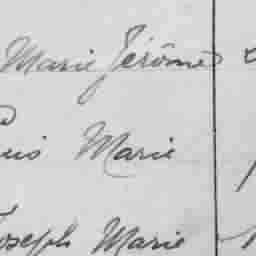 Marie Jérôme
uis Marie
Joseph Marie